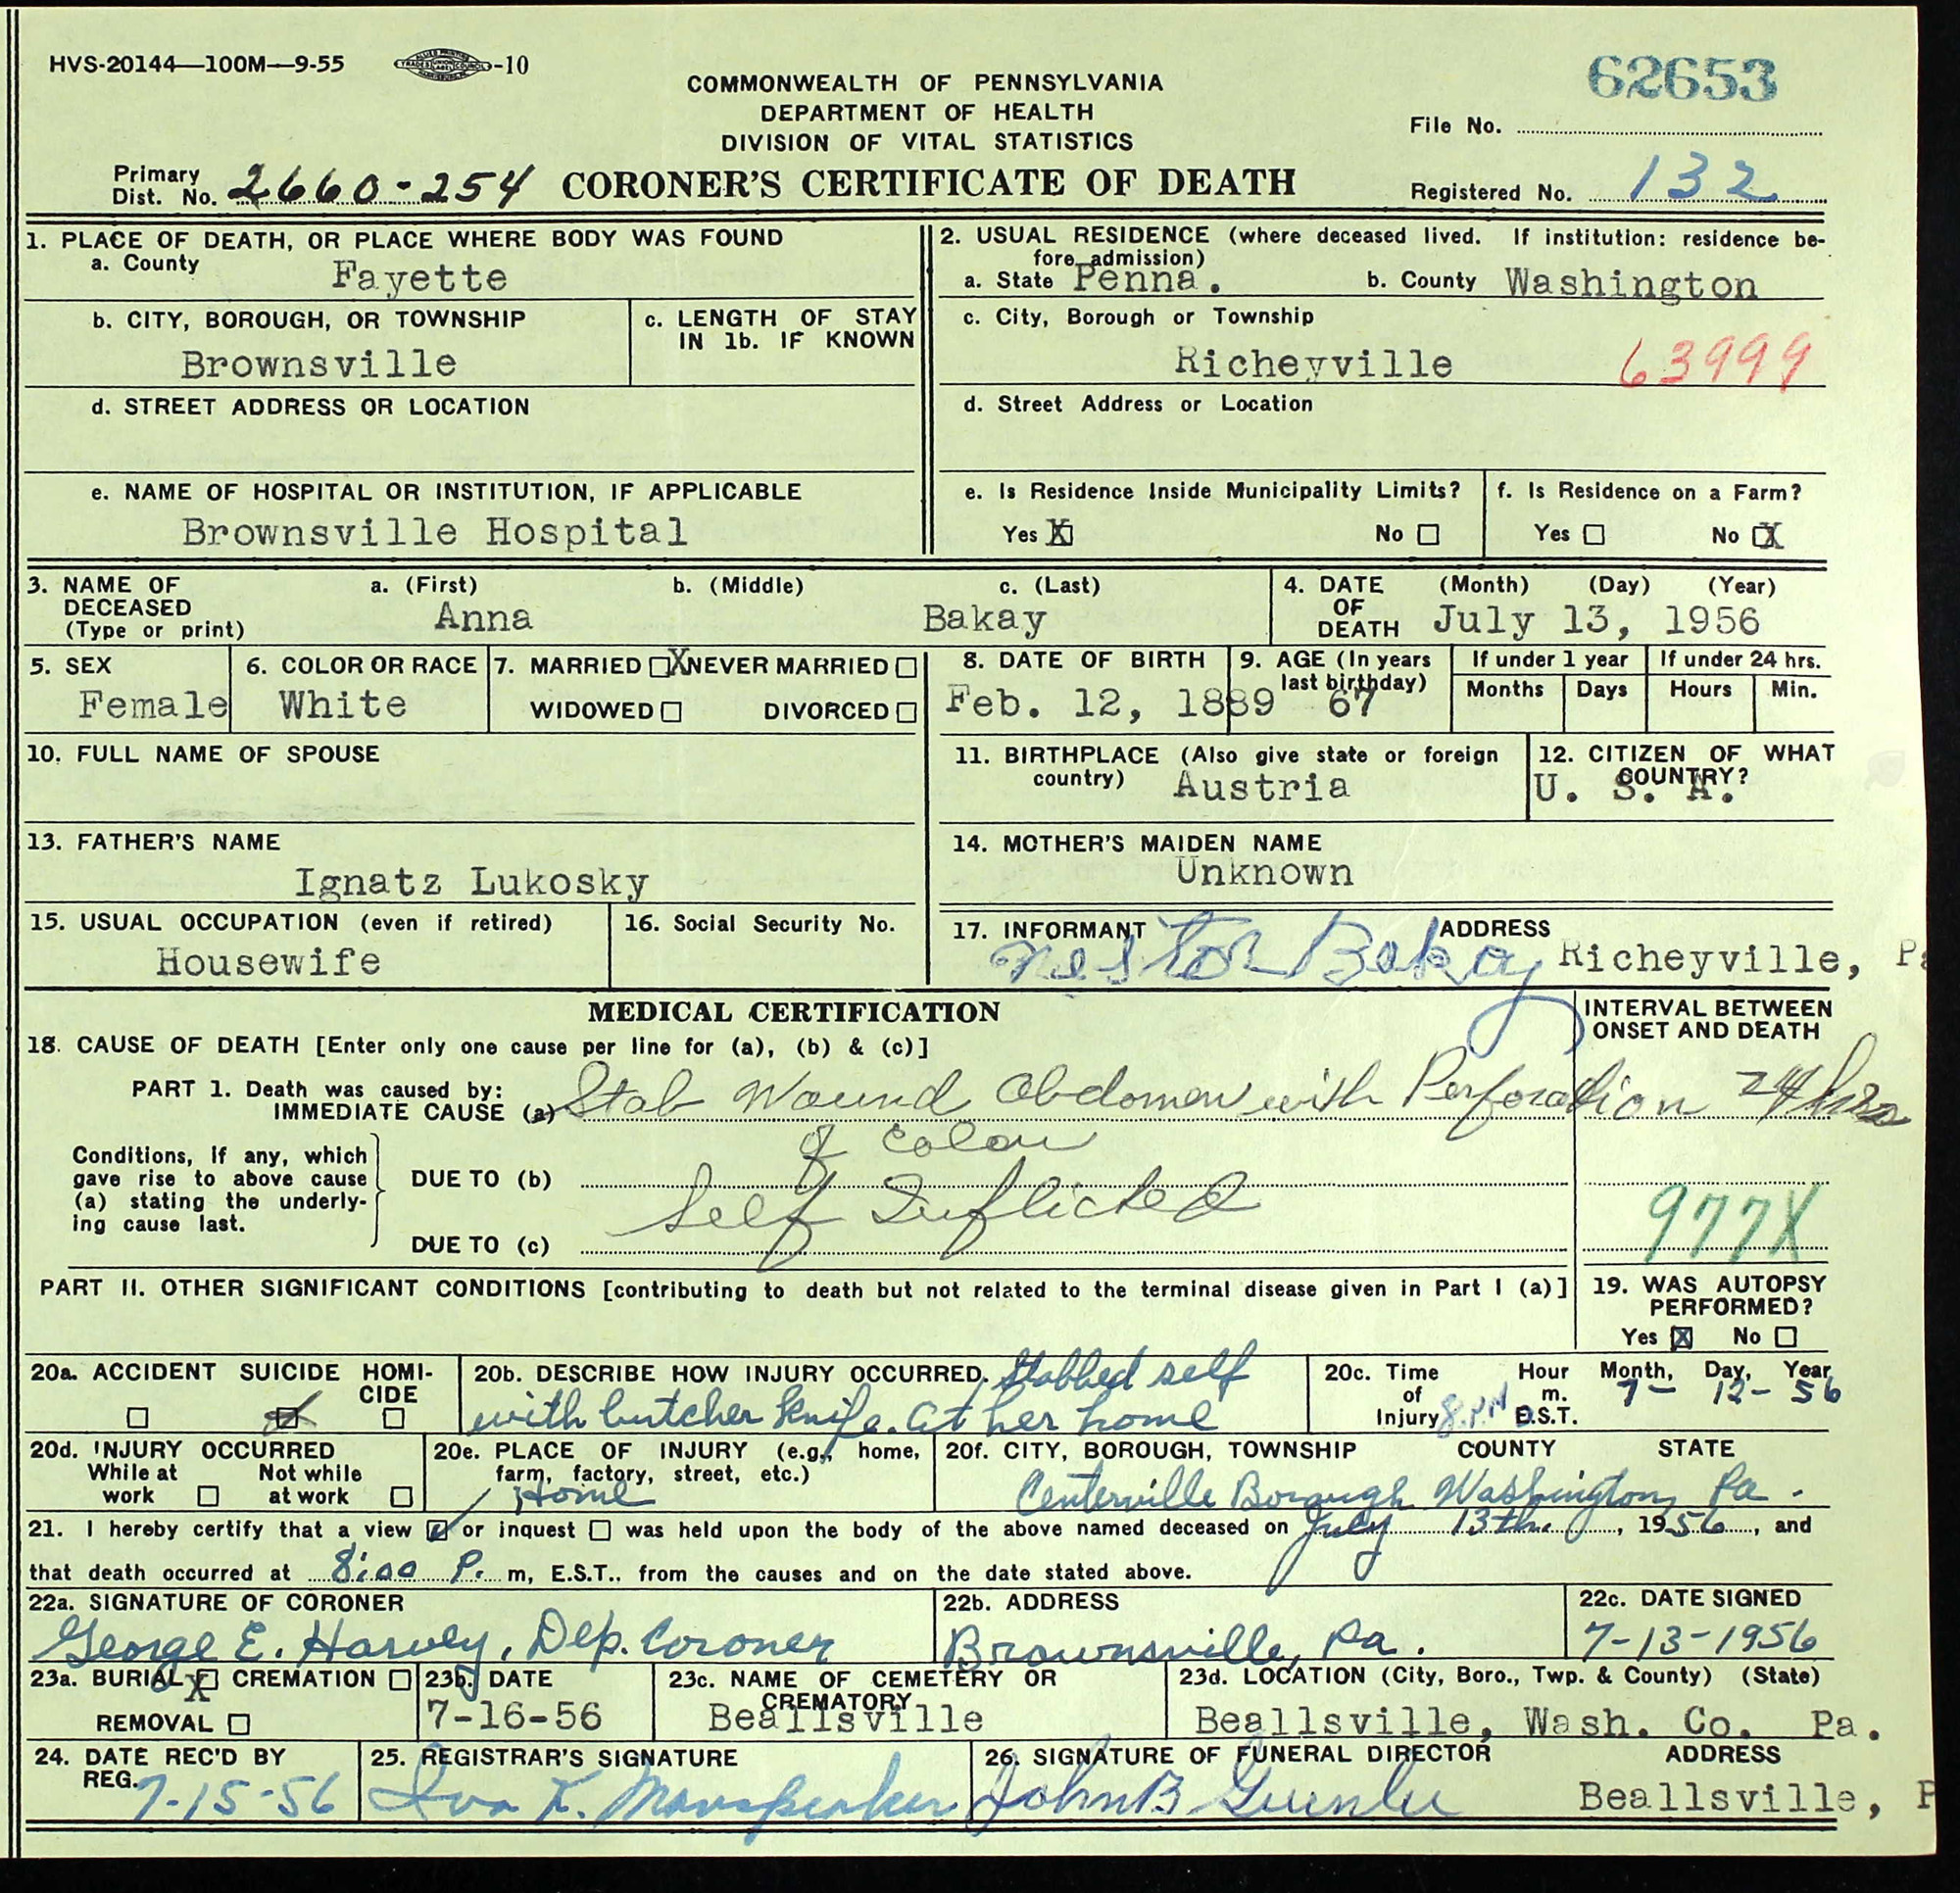 HVS-20144—100M—9-55 -10
62653
COMMONWEALTH OF PENNSYLVANIA
DEPARTMENT OF HEALTH
DIVISION OF VITAL STATISTICS
File No.
Primary Dist. No. 2660-254 CORONER'S CERTIFICATE OF DEATH
Registered No. 132
1. PLACE OF DEATH, OR PLACE WHERE BODY WAS FOUND
a. County Fayette
2. USUAL RESIDENCE (where deceased lived. If institution: residence be-
fore admission)
a. State Penna. b. County Washington
b. CITY, BOROUGH, OR TOWNSHIP
Brownsville
c. LENGTH OF STAY
IN 1b. IF KNOWN
c. City, Borough or Township
Richeyville 63999
d. STREET ADDRESS OR LOCATION
d. Street Address or Location
e. NAME OF HOSPITAL OR INSTITUTION, IF APPLICABLE
Brownsville Hospital
e. Is Residence Inside Municipality Limits?
Yes X No
f. Is Residence on a Farm?
Yes No X
3. NAME OF DECEASED (Type or print)
a. (First) b. (Middle) c. (Last)
Anna Bakay
4. DATE OF DEATH (Month) (Day) (Year)
July 13, 1956
5. SEX
Female
6. COLOR OR RACE
White
7. MARRIED X NEVER MARRIED
WIDOWED DIVORCED
8. DATE OF BIRTH
Feb. 12, 1889
9. AGE (In years
last birthday)
67
If under 1 year
Months Days
If under 24 hrs.
Hours Min.
10. FULL NAME OF SPOUSE
11. BIRTHPLACE (Also give state or foreign
country) Austria
12. CITIZEN OF WHAT
COUNTRY?
U. S. A.
13. FATHER'S NAME
Ignatz Lukosky
14. MOTHER'S MAIDEN NAME
Unknown
15. USUAL OCCUPATION (even if retired)
Housewife
16. Social Security No.
17. INFORMANT Nestor Bakay ADDRESS Richeyville,
MEDICAL CERTIFICATION
INTERVAL BETWEEN
ONSET AND DEATH
18. CAUSE OF DEATH [Enter only one cause per line for (a), (b) & (c)]
PART 1. Death was caused by:
IMMEDIATE CAUSE (a) Stab Wound Abdomen with Perforation 24 hrs
of Colon
Conditions, if any, which
gave rise to above cause
(a) stating the underly-
ing cause last.
DUE TO (b)
Self Inflicted
DUE TO (c)
977X
PART II. OTHER SIGNIFICANT CONDITIONS [contributing to death but not related to the terminal disease given in Part I (a)]
19. WAS AUTOPSY
PERFORMED?
Yes X No
20a. ACCIDENT SUICIDE HOMI-
CIDE
20b. DESCRIBE HOW INJURY OCCURRED. Stabbed self
with butcher knife. at her home
20c. Time of Injury Hour m. E.S.T. Month, Day, Year
8 PM 7- 12- 56
20d. INJURY OCCURRED
While at work Not while at work
20e. PLACE OF INJURY (e.g., home,
farm, factory, street, etc.)
Home
20f. CITY, BOROUGH, TOWNSHIP COUNTY STATE
Centerville Borough Washington, Pa.
21. I hereby certify that a view or inquest was held upon the body of the above named deceased on July 13th., 1956, and
that death occurred at 8:00 P. m, E.S.T., from the causes and on the date stated above.
22a. SIGNATURE OF CORONER
George E. Harvey, Dep. Coroner
22b. ADDRESS
Brownsville, Pa.
22c. DATE SIGNED
7-13-1956
23a. BURIAL X CREMATION
REMOVAL
23b. DATE
7-16-56
23c. NAME OF CEMETERY OR
CREMATORY
Beallsville
23d. LOCATION (City, Boro., Twp. & County) (State)
Beallsville, Wash. Co. Pa.
24. DATE REC'D BY
REG. 7-15-56
25. REGISTRAR'S SIGNATURE
Iva K.
26. SIGNATURE OF FUNERAL DIRECTOR
John B
ADDRESS
Beallsville,